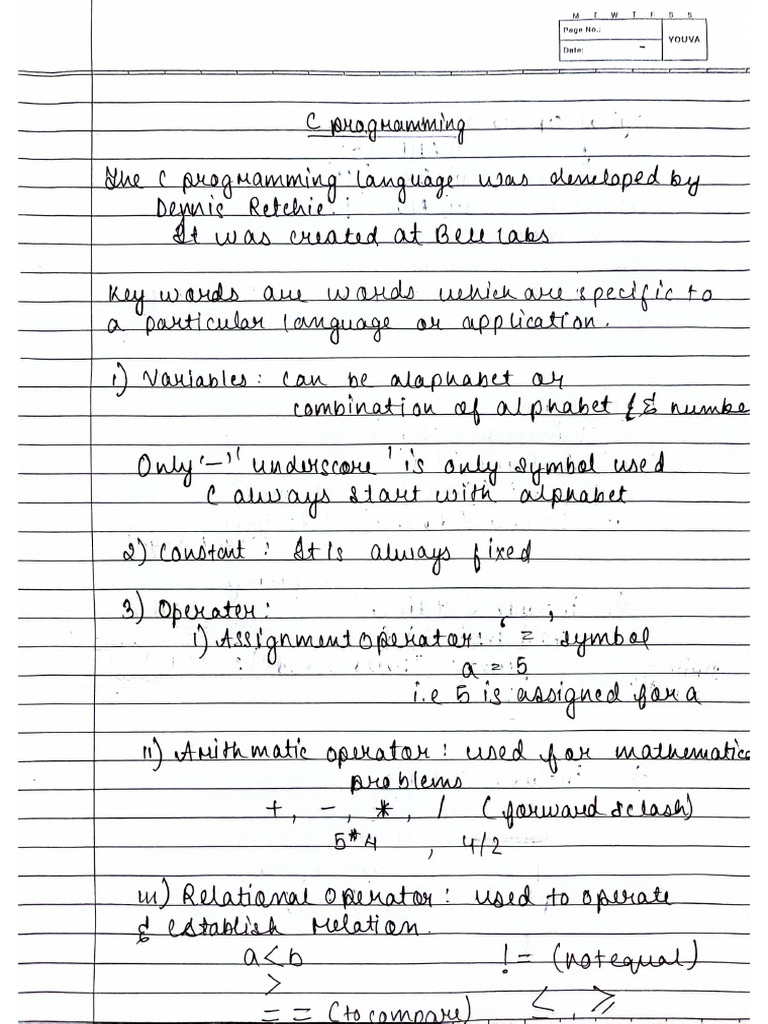 M T W T F S S
Page No.:
Date:
YOUVA
C programming
The C programming language was developed by
Dennis Retchie.
It was created at Bell labs
Key words are words which are specific to
a particular language or application.
1) Variables: can be alaphabet or
combination of alphabet & numbe
Only '_' 'underscore' is only symbol used
C always start with alphabet
2) Constant : It is always fixed
3) Operater:
i) Assignment operator: '=' symbol
a = 5
i.e 5 is assigned for a
ii) Arithmatic operator : used for mathematica
problems
+, -, *, / (forward sclash)
5*4 , 4/2
iii) Relational Operator : used to operate
& establish relation.
a<b != (not equal)
>
== (to compare) ≤, ≥